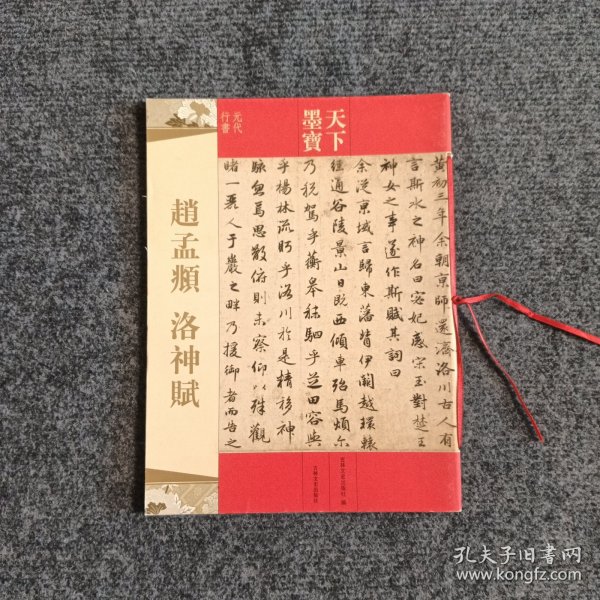 天下
墨寶
元代
行書
趙孟頫 洛神賦
黄初三年余朝京師還濟洛川古人有
言斯水之神名曰宓妃感宋玉對楚王
神女之事遂作斯賦其詞曰
余從京域言歸東藩背伊闕越轘轅
經通谷陵景山日既西傾車殆馬煩尔
乃税駕乎蘅皋秣駟乎芝田容與
乎楊林流眄乎洛川於是精移神
駭忽焉思散俯則未察仰以殊觀
睹一麗人于巖之畔乃援御者而告之
吉林文史出版社 編
吉林文史出版社
孔夫子旧书网
www.kongfz.com